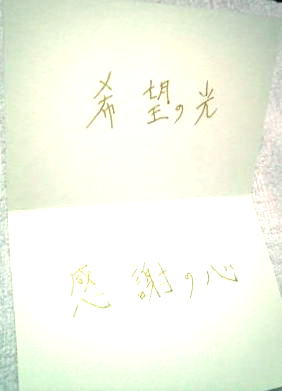 希望の光
感謝の心